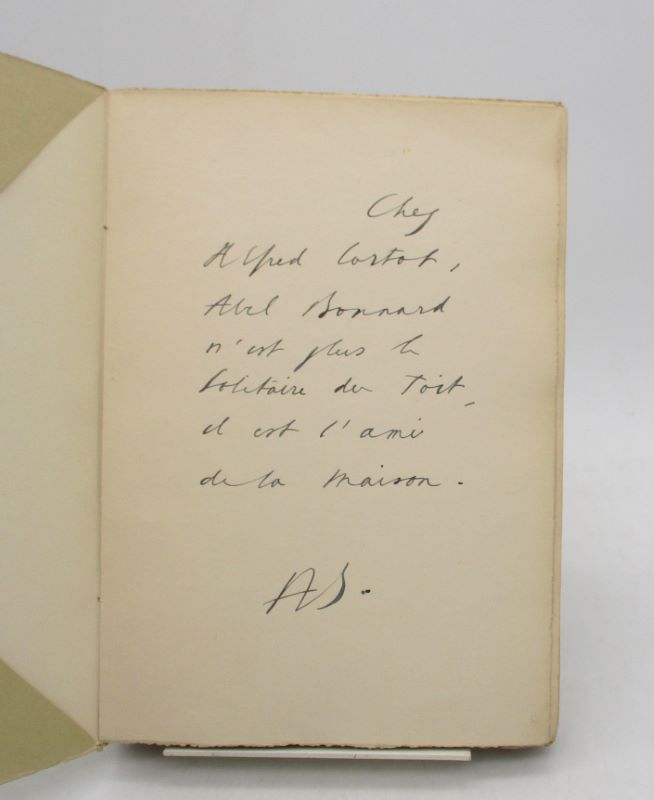 Chez
Alfred Cortot,
Abel Bonnard
n'est plus le
Solitaire du Toit,
il est l'ami
de la maison.
AB.